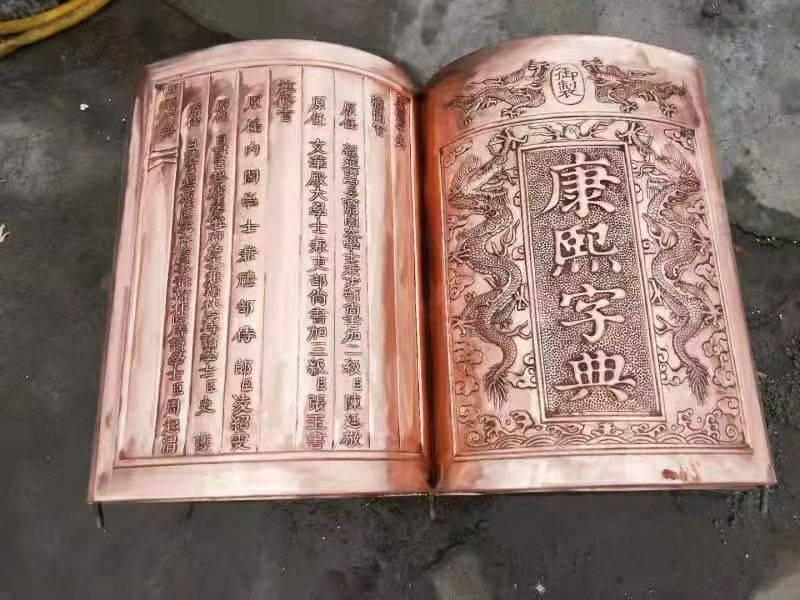 御製
康熙字典
總閱官
原任 文淵閣大學士兼吏部尚書加二級臣陳廷敬
原任 文華殿大學士兼吏部尚書加三級臣張玉書
纂修官
原任内閣學士兼禮部侍郎臣凌紹雯
原任 侍讀學士臣史夔
原任 侍讀學士臣周起渭
康熙字典